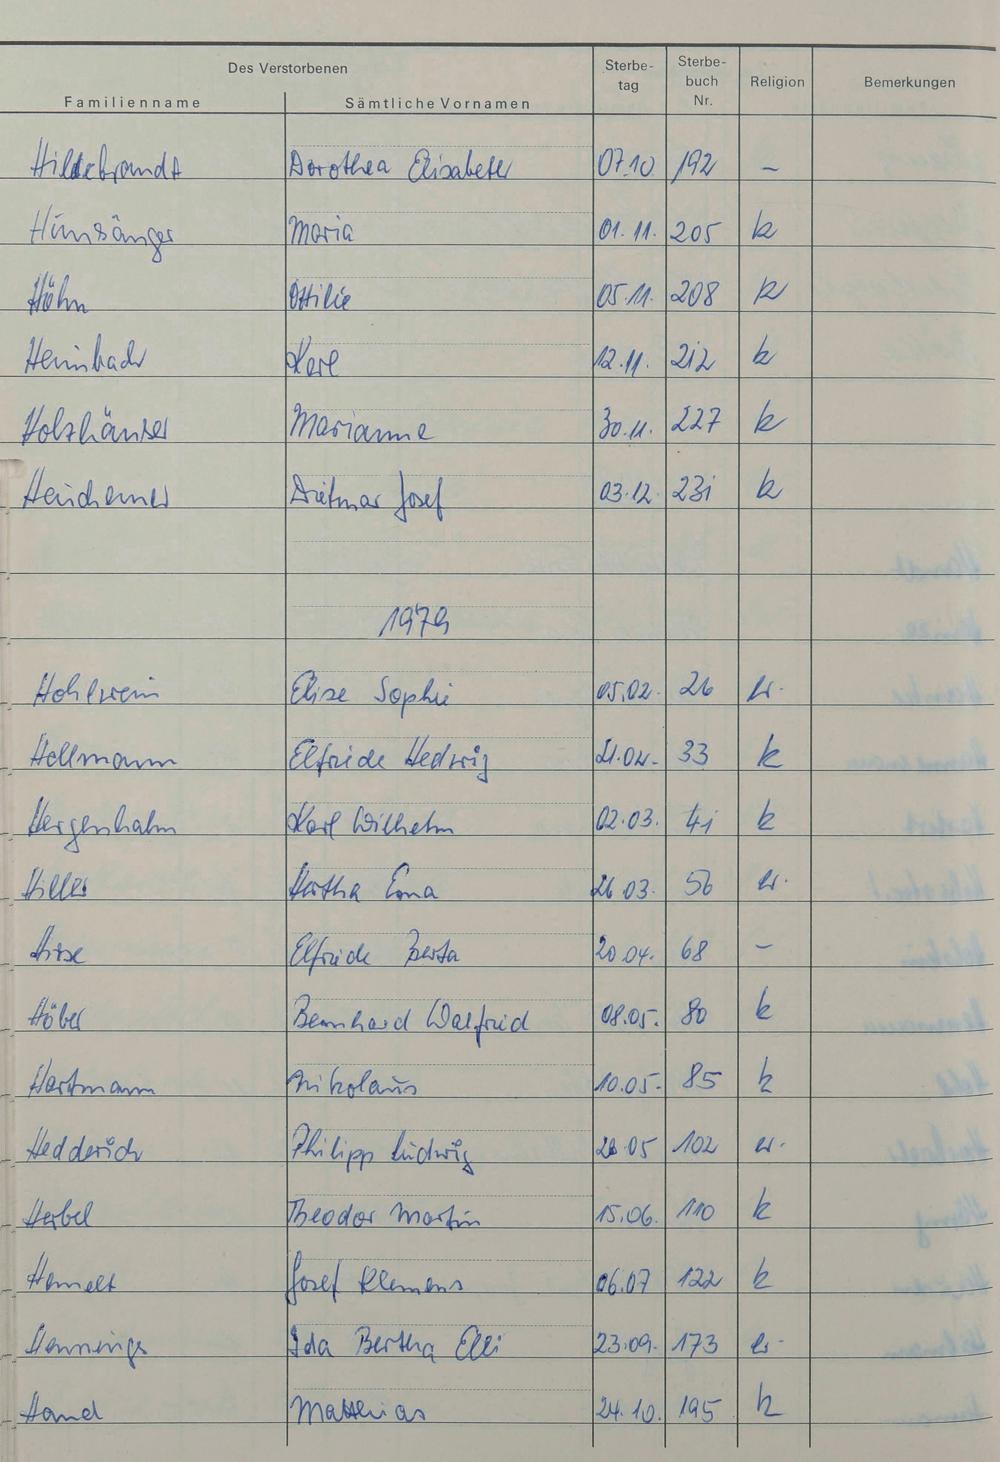 Des Verstorbenen
Familienname Sämtliche Vornamen Sterbe-tag Sterbe-buch Nr. Religion Bemerkungen
Hildebrandt Dorothea Elisabeth 07.10 192 –
Hünsänger Maria 01.11. 205 k
Höhn Ottilie 05.11. 208 k
Heimbach Karl 12.11. 212 k
Holzhäuser Marianne 30.11. 227 k
Heuchemer Dietmar Josef 03.12. 231 k
1979
Hohlwein Elise Sophie 05.02. 26 ev.
Hellmann Elfriede Hedwig 33 k
Hergenhahn Karl Wilhelm 02.03. 41 k
Hiller Hertha Erna 26.03. 56 ev.
Elfriede Berta 20.04. 68 –
Höber Bernhard Walfried 08.05. 80 k
Hartmann Nikolaus 10.05. 85 k
Hedderich Philipp Ludwig 05 102 ev.
Herbel Theodor Martin 15.06. 110 k
Hamelt Josef Klemens 06.07 122 k
Hennings Ida Bertha Elli 23.09. 173 ev.
Hand Matthias 24.10. 195 k